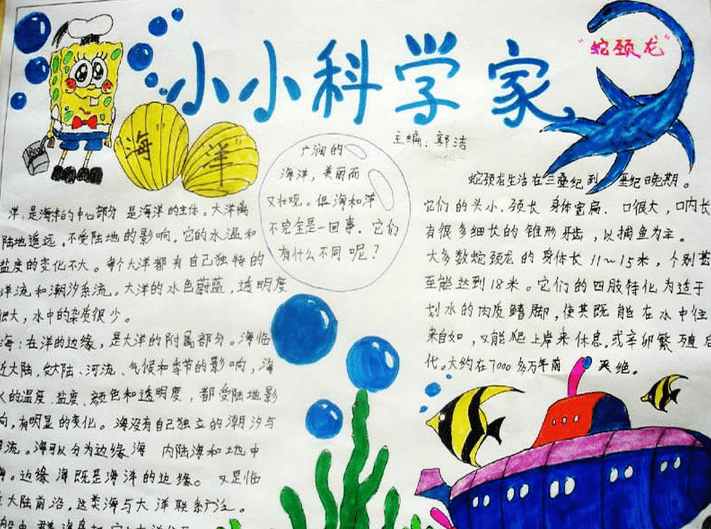 小小科学家
主编：郭洁
"蛇颈龙"
"海"
洋"
广阔的
海洋，美丽而
又壮观。但海和洋
不完全是一回事，它们
有什么不同呢？
洋：是海洋的中心部分 是海洋的主体。大洋离
陆地遥远，不受陆地的影响。它的水温和
盐度的变化不大。每个大洋都有自己独特的
洋流和潮汐系流。大洋的水色蔚蓝，透明度
很大，水中的杂质很少。
海：在洋的边缘，是大洋的附属部分。海临
近大陆，受大陆、河流、气候和季节的影响，海
水的温度、盐度、颜色和透明度，都受陆地影
响，有明显的变化。海没有自己独立的潮汐与
海可以分为边缘海 内陆海和地中
海。边缘海既是海洋的边缘。又是临
大陆前沿，这类海与大洋联系广泛。
蛇颈龙生活在三叠纪到 垩纪晚期。
它们的头小、颈长 身体宽扁、口很大，口内长
有很多细长的锥形牙齿，以捕鱼为主。
大多数蛇颈龙的身体长11～15米，个别甚
至能达到18米。它们的四肢特化为适于
划水的肉质鳍脚，使其既能在水中往
来自如，又能爬上岸来休息，或辛卵繁殖后
代。大约在7000多万年前 灭绝。